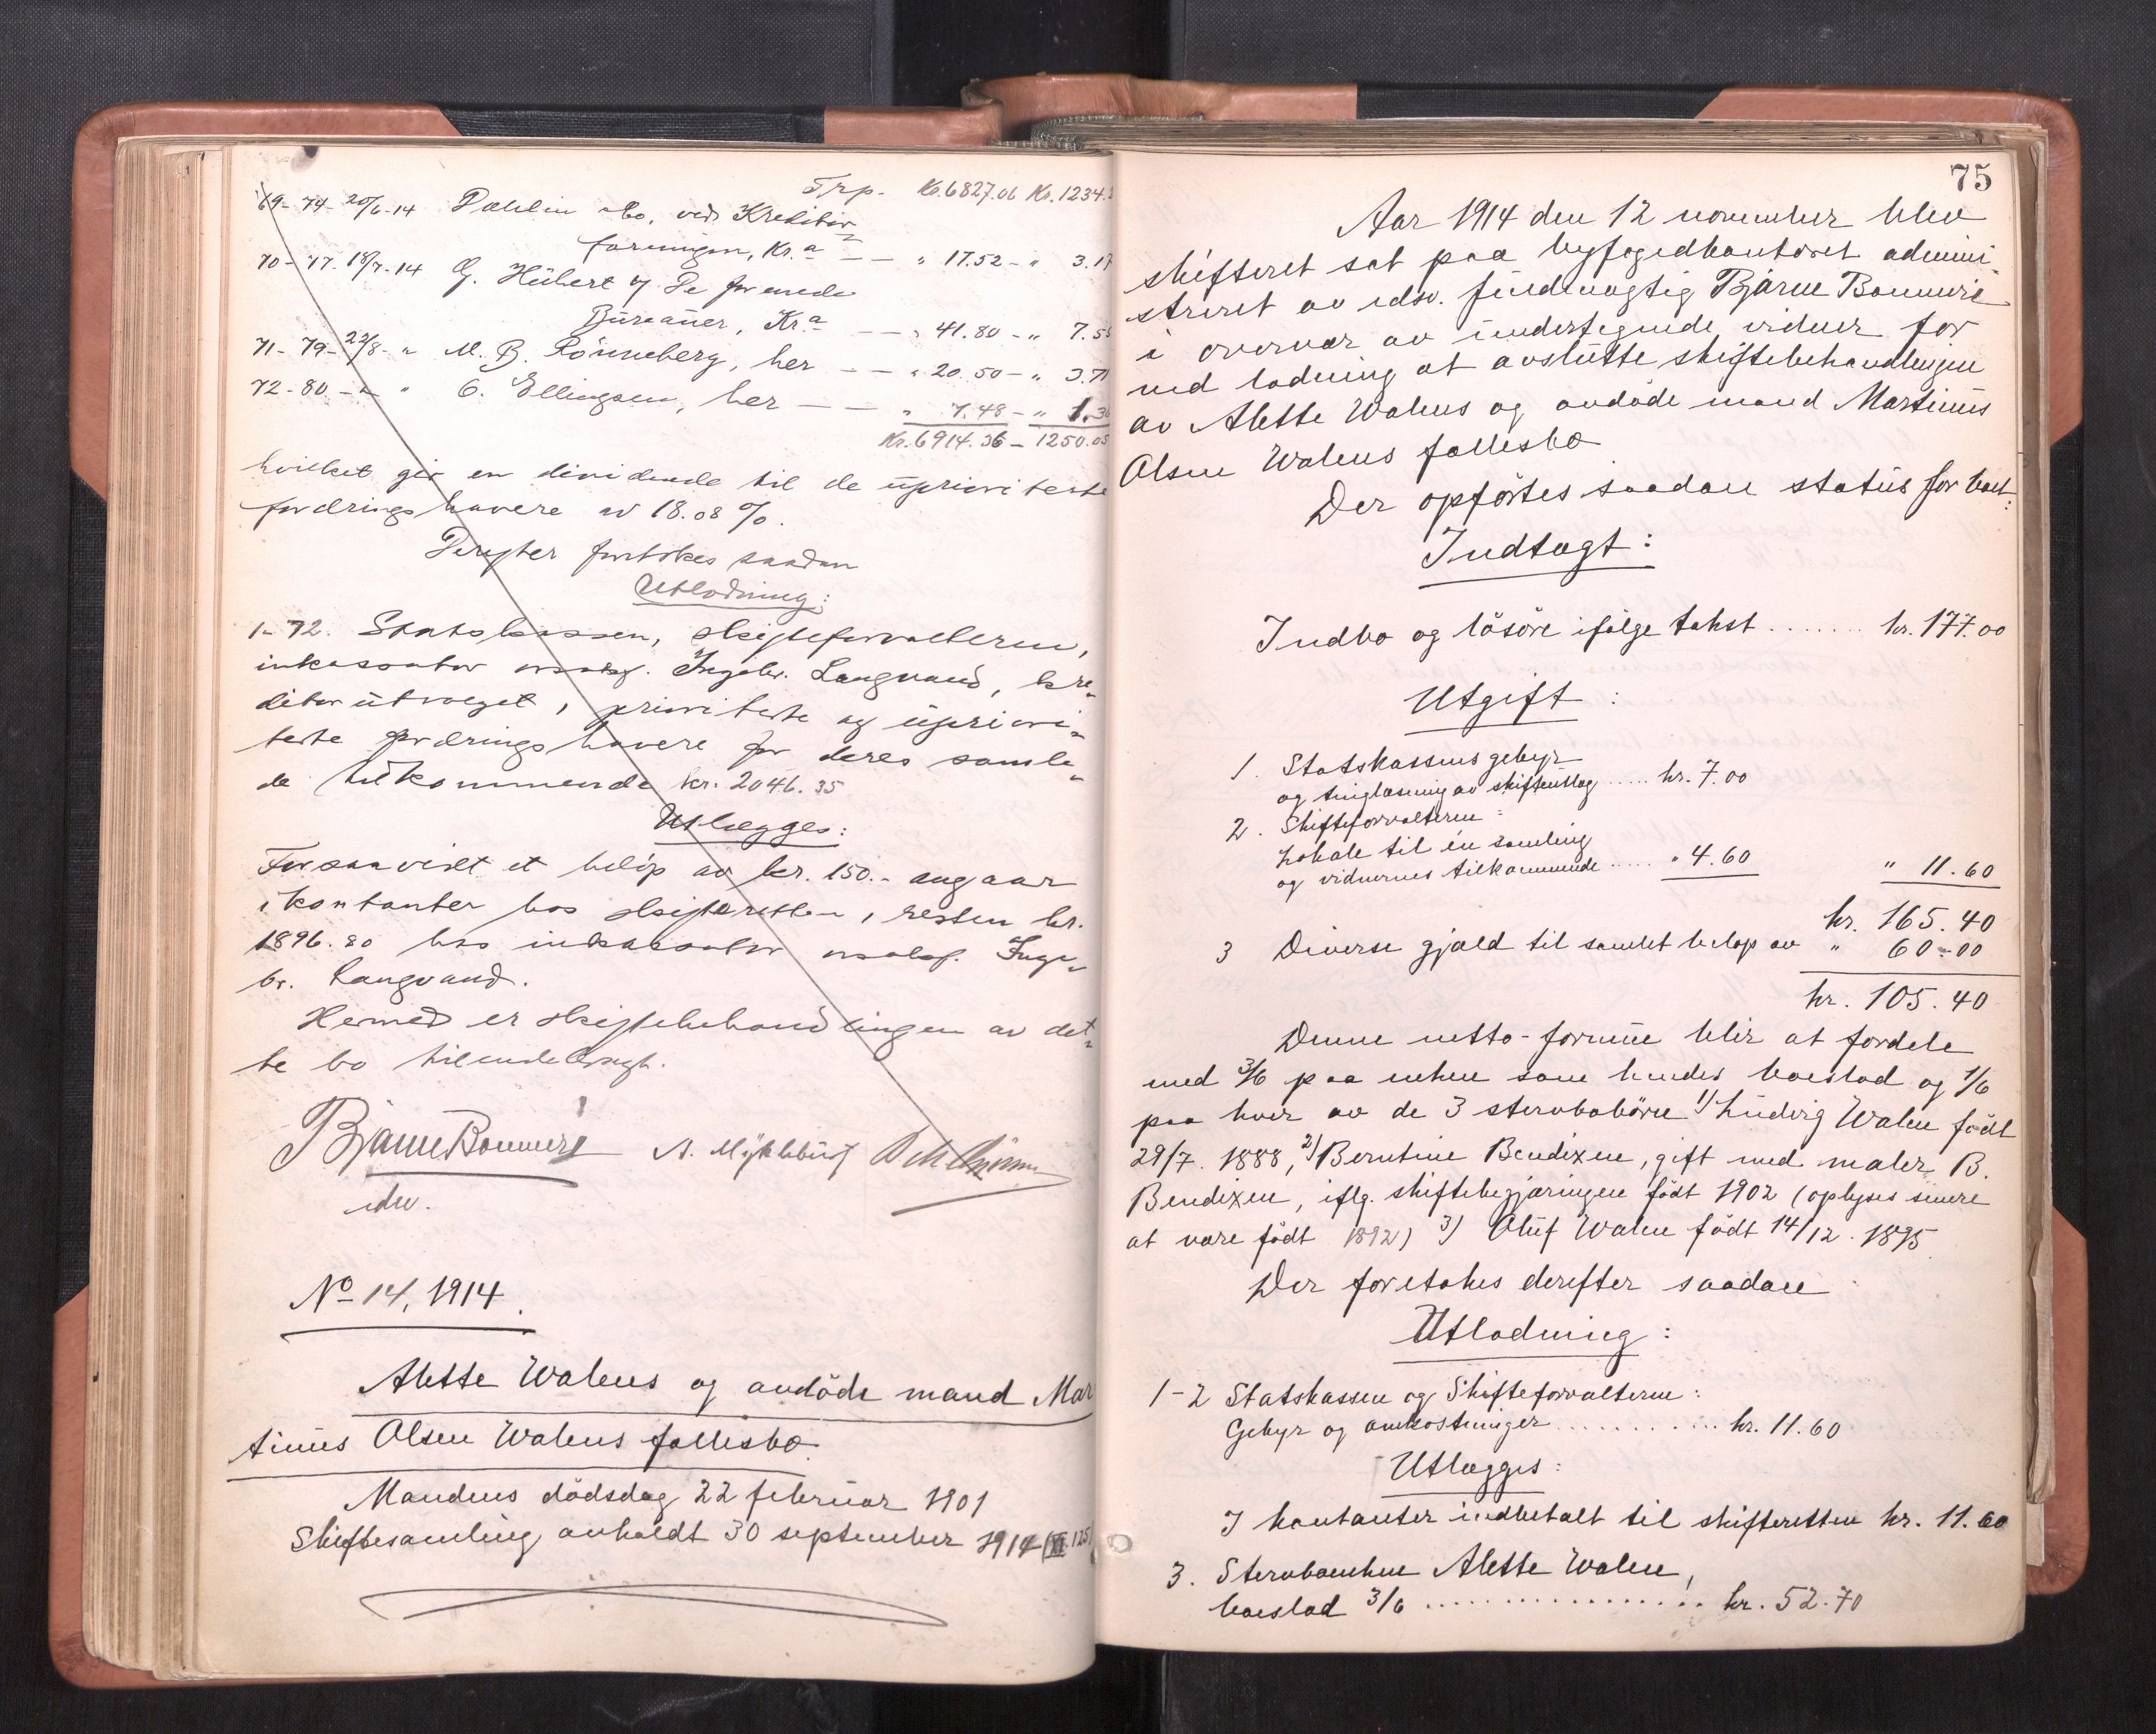 Trp. Kr. 6827.06 Kr. 1234.
69-74-20/6-14 Dahlin & Co. ved Kreditor
foreningen, Kr.a — — " 17.52 - " 3.17
70-77-18/7-14 G. Hübert & De forenede
Büreauer, Kr.a — — " 41.80 - " 7.55
71-79-22/8- " M. B. Rönneberg, her — — " 20.50 - " 3.71
72-80- " " C. Ellingsen, her — — " 7.48 - " 1.36
Kr. 6914.36 - 1250.05
hvilket gir en dividende til de üprioriterte
fordringshavere av 18.08 %.
Derefter foretokes saadan
Utlodning:
1-72. Statskassen, skifteforvalteren,
inkassator Ingebr. Langvand, kre-
ditorütvalget, prioriterte og üpriori-
terte fordringshavere for deres samle-
de tilkommende kr. 2046.35
Utlægges:
Forsaavidt et belöp av kr. 150.- angaar
i kontanter hos skifteretten, resten kr.
1896.80 hos inkassator Inge-
br. Langvand.
Hermed er skiftebehandlingen av det-
te bo tilendebragt.
Bjarne Bonnevie A. Myklebüst
edsv.
No 14, 1914.
Alette Walens og avdöde mand Mar
tinüs Olsen Walens fællesbo.
Mandens dödsdag 22 februar 1901
Skiftesamling anholdt 30 september 1914 (XI. 125)
75
Aar 1914 den 12 november blev
skifteret sat paa byfogedkontoret admini-
streret av edsv. füldmægtig Bjarne Bonnevie
i overvær av ündertegnede vidner for
ved lodning at avslütte skiftebehandlingen
av Alette Walens og avdöde mand Martinüs
Olsen Walens fællesbo
Der opförtes saadan statüs for boet:
Indtægt:
Indbo og lösöre ifölge takst ....... kr. 177.00
Utgift:
1. Statskassens gebyr
og tinglæsning av skifteütlæg ..... kr. 7.00
2. Skifteforvalteren:
Lokale til én samling
og vidnernes tilkommende ..... " 4.60 " 11.60
kr. 165.40
3 Diverse gjæld til samlet belöp av " 60.00
kr. 105.40
Denne netto-formüe blir at fordele
med 3/6 paa enken som hendes boeslod og 1/6
paa hver av de 3 stervbobörn 1) Lüdvig Walen födt
29/7. 1888, 2) Berntine Bendixen, gift med maler B.
Bendixen, iflg. skiftebegjæringen födt 1902 (oplyses senere
at være födt 1892) 3) Olüf Walen födt 14/12. 1895
Der foretokes derefter saadan
Utlodning:
1-2 Statskassen og Skifteforvalteren:
Gebyr og omkostninger ............ kr. 11.60
Utlægges:
I kontanter indbetalt til skifteretten kr. 11.60
3. Stervboenken Alette Walen,
boeslod 3/6 ................. kr. 52.70